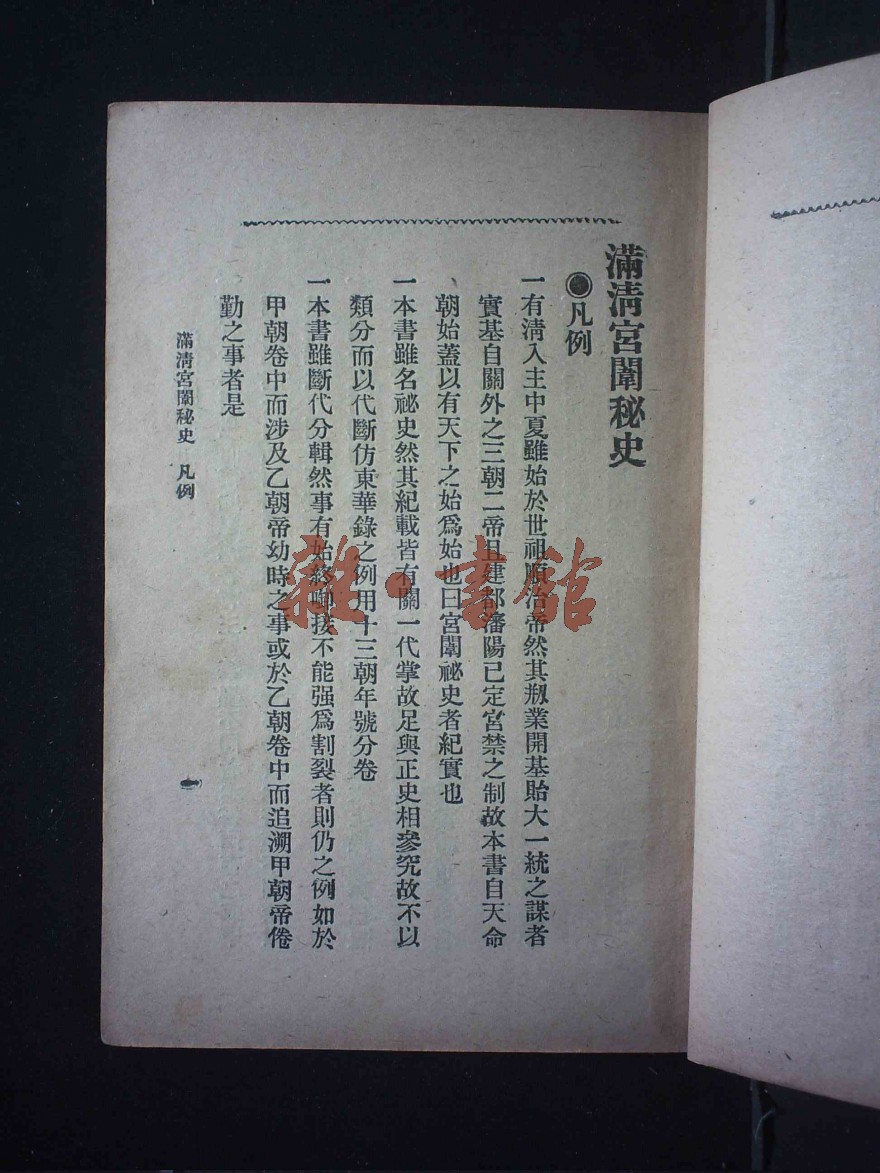 滿清宮闈秘史
◉凡例
一有清入主中夏雖始於世祖順治帝然其剏業開基貽大一統之謀者
實基自關外之三朝二帝且建都瀋陽已定宮禁之制故本書自天命
朝始蓋以有天下之始爲始也曰宮闈祕史者紀實也
一本書雖名祕史然其紀載皆有關一代掌故足與正史相參究故不以
類分而以代斷仿東華錄之例用十三朝年號分卷
一本書雖斷代分輯然事有始終啣接不能强爲割裂者則仍之例如於
甲朝卷中而涉及乙朝帝幼時之事或於乙朝卷中而追溯甲朝帝倦
勤之事者是
滿清宮闈秘史 凡例
一
雜·書館